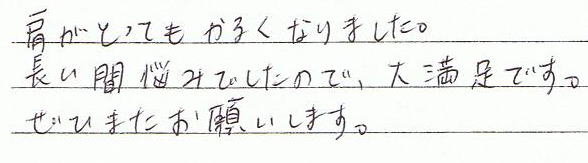 肩がとってもかるくなりました。
長い間悩みでしたので、大満足です。
ぜひまたお願いします。